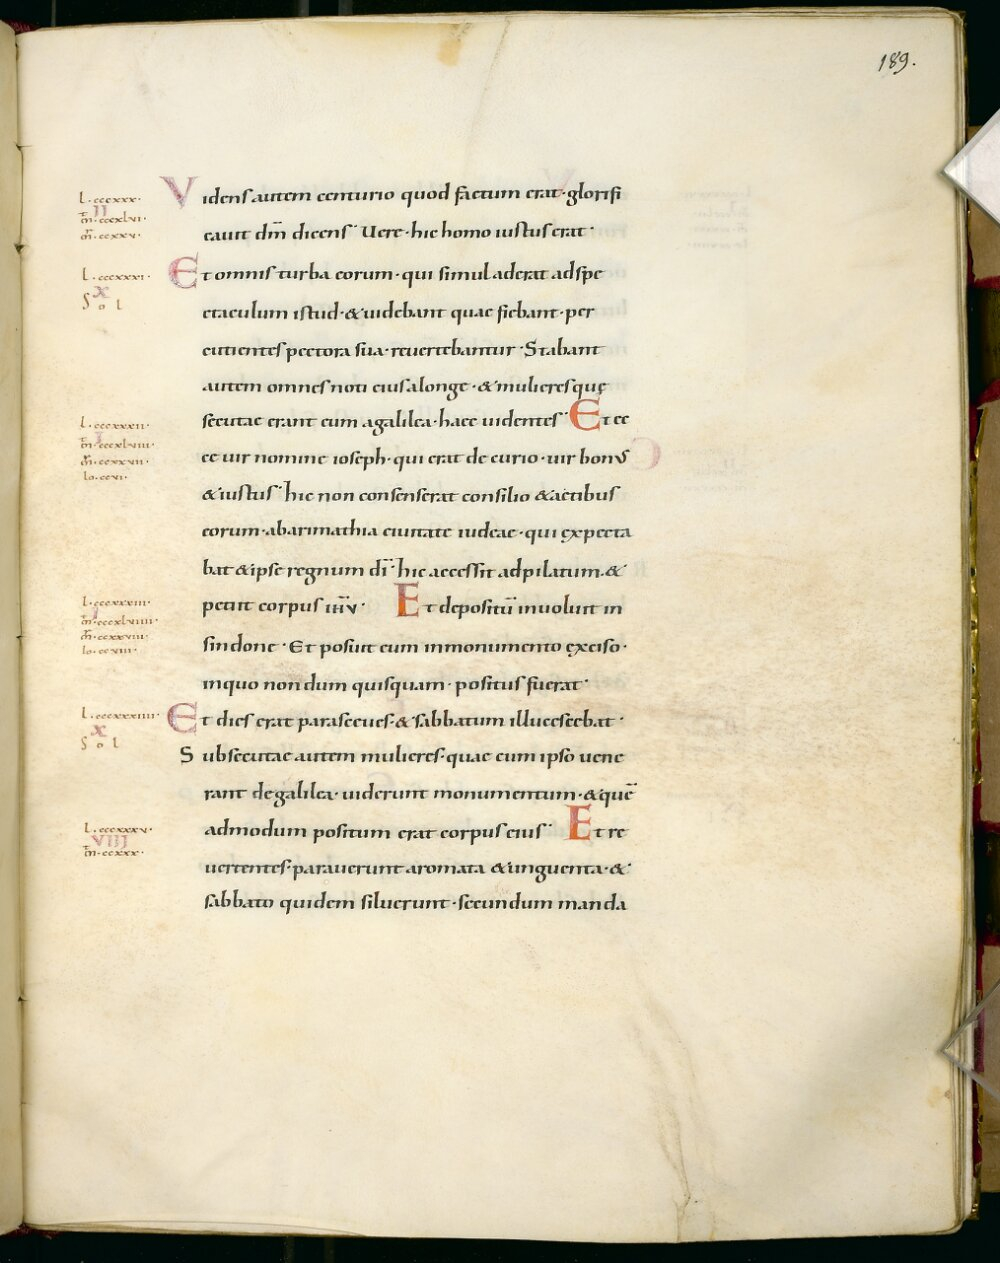 189.
l. cccxxx.
II
m̄. cccxlvi.
m̄. ccxxv.
Videns autem centurio quod factum erat · glorifi
cavit dm̄ dicens · Vere · hic homo iustus erat ·
l. cccxxxi.
X
Sol
Et omnis turba eorum · qui simul aderat ad spe
ctaculum istud · & videbant quae fiebant · per
cutientes pectora sua · revertebantur · Stabant
autem omnes noti eius a longe · & mulieres quę
l. cccxxxii.
I
m̄. cccxlviii.
m̄. ccxxvii.
Io. ccvi.
secutae erant eum a galilea · haec videntes · Et ec
ce vir nomine ioseph · qui erat decurio · vir bonus
& iustus · hic non consenserat consilio & actibus
eorum · ab arimathia civitate iudeae · qui expecta
bat & ipse regnum dī · hic accessit ad pilatum · &
l. cccxxxiii.
I
m̄. cccxlviiii.
m̄. ccxxviii.
Io. ccviii.
petiit corpus iħv̄ · Et depositū involvit in
sindone · Et posuit eum in monumento exciso ·
in quo nondum quisquam · positus fuerat ·
l. cccxxxiiii.
X
Sol
Et dies erat parasceves · & sabbatum illucescebat ·
Subsecutae autem mulieres · quae cum ipso vene
rant de galilea · viderunt monumentum · & quē
l. cccxxxv.
VIII
m̄. ccxxx.
admodum positum erat corpus eius · Et re
vertentes · paraverunt aromata & unguenta · &
sabbato quidem siluerunt · secundum manda